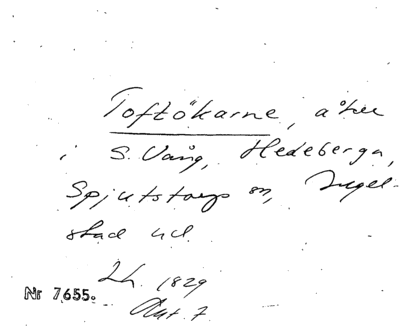 Toftökarne, åker
i S. Vång, Hedeberga,
Spjutstorps sn, Ingel-
stad hd
Lh. 1829
Akt. 7
Nr 7655.